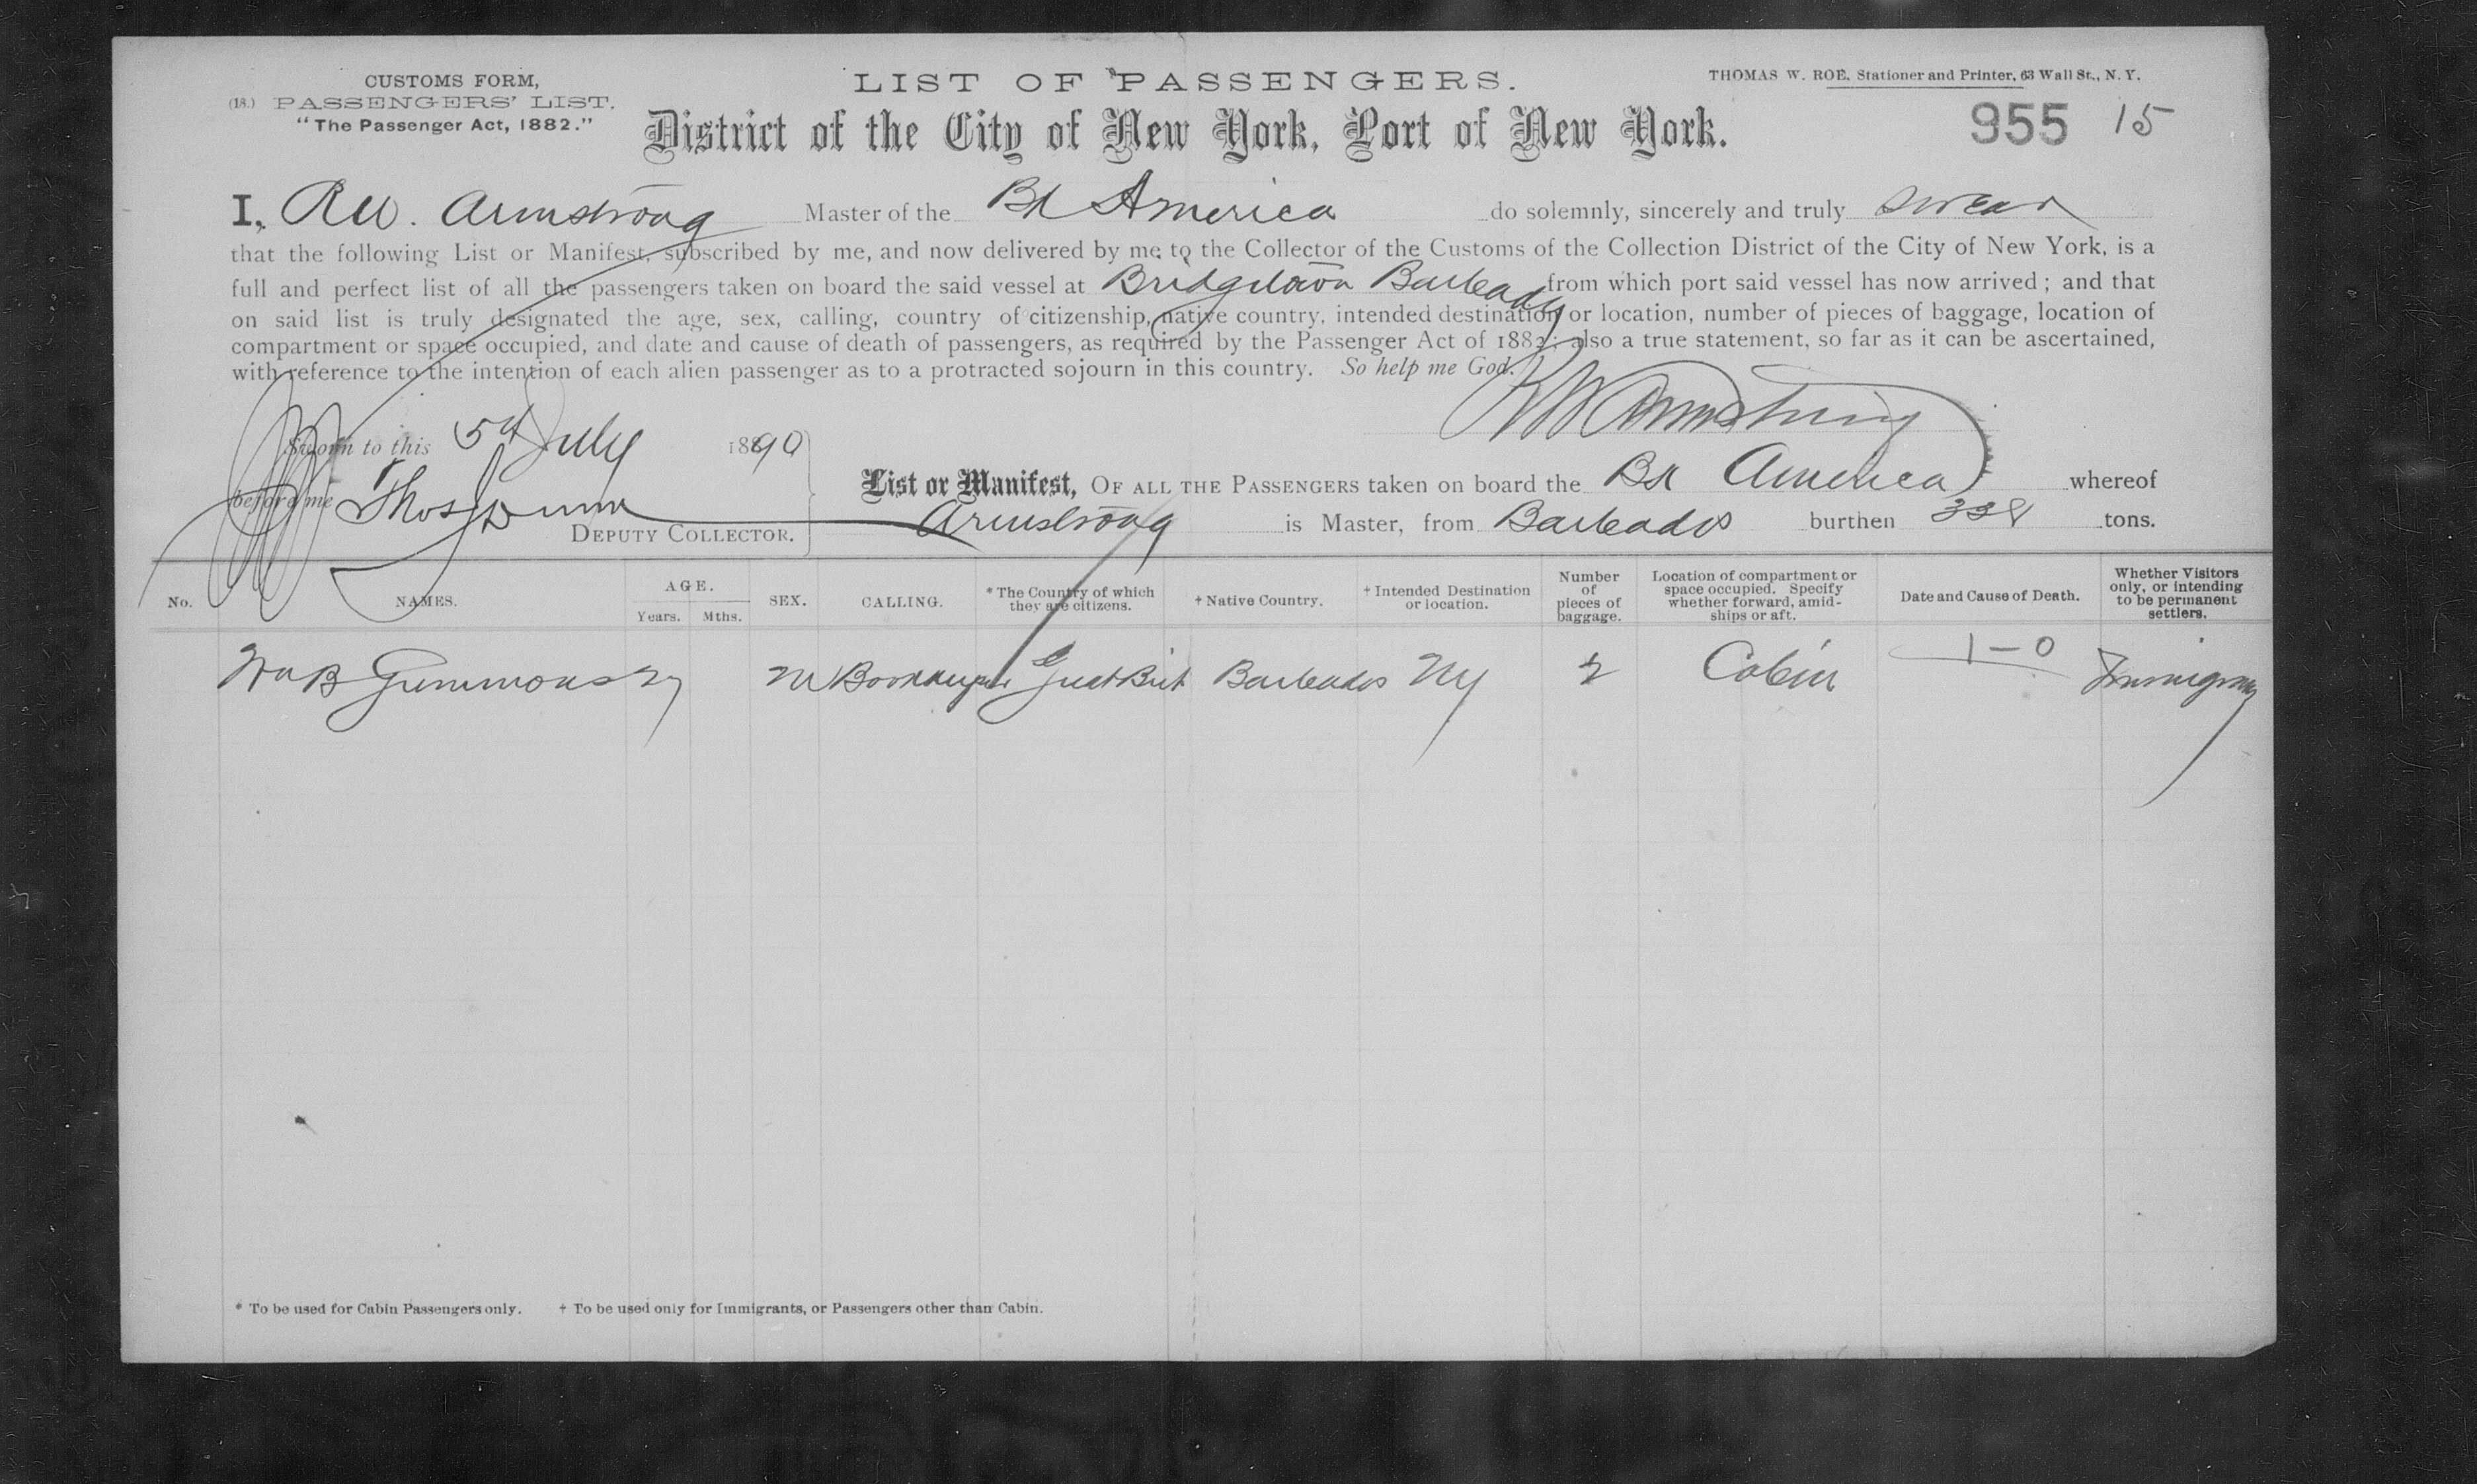 CUSTOMS FORM,
(18.) PASSENGERS' LIST.
"The Passenger Act, 1882."
LIST OF PASSENGERS.
THOMAS W. ROE, Stationer and Printer, 63 Wall St., N. Y.
District of the City of New York, Port of New York.
955 15
I, R W. Armstrong Master of the Bk America do solemnly, sincerely and truly swear
that the following List or Manifest, subscribed by me, and now delivered by me to the Collector of the Customs of the Collection District of the City of New York, is a
full and perfect list of all the passengers taken on board the said vessel at Bridgetown Barbados from which port said vessel has now arrived; and that
on said list is truly designated the age, sex, calling, country of citizenship, native country, intended destination or location, number of pieces of baggage, location of
compartment or space occupied, and date and cause of death of passengers, as required by the Passenger Act of 1882; also a true statement, so far as it can be ascertained,
with reference to the intention of each alien passenger as to a protracted sojourn in this country. So help me God.
R W Armstrong
Sworn to this 5th July 1890
before me Thos Dunn
DEPUTY COLLECTOR.
List or Manifest, OF ALL THE PASSENGERS taken on board the Bk America whereof
Armstrong is Master, from Barbados burthen 338 tons.
No. NAMES. AGE. Years. Mths. SEX. CALLING. * The Country of which they are citizens. † Native Country. † Intended Destination or location. Number of pieces of baggage. Location of compartment or space occupied. Specify whether forward, amidships or aft. Date and Cause of Death. Whether Visitors only, or intending to be permanent settlers.
1-0
Wm B Gummons 27 M Bookkeeper Great Brit Barbados NY 2 Cabin
* To be used for Cabin Passengers only. † To be used only for Immigrants, or Passengers other than Cabin.